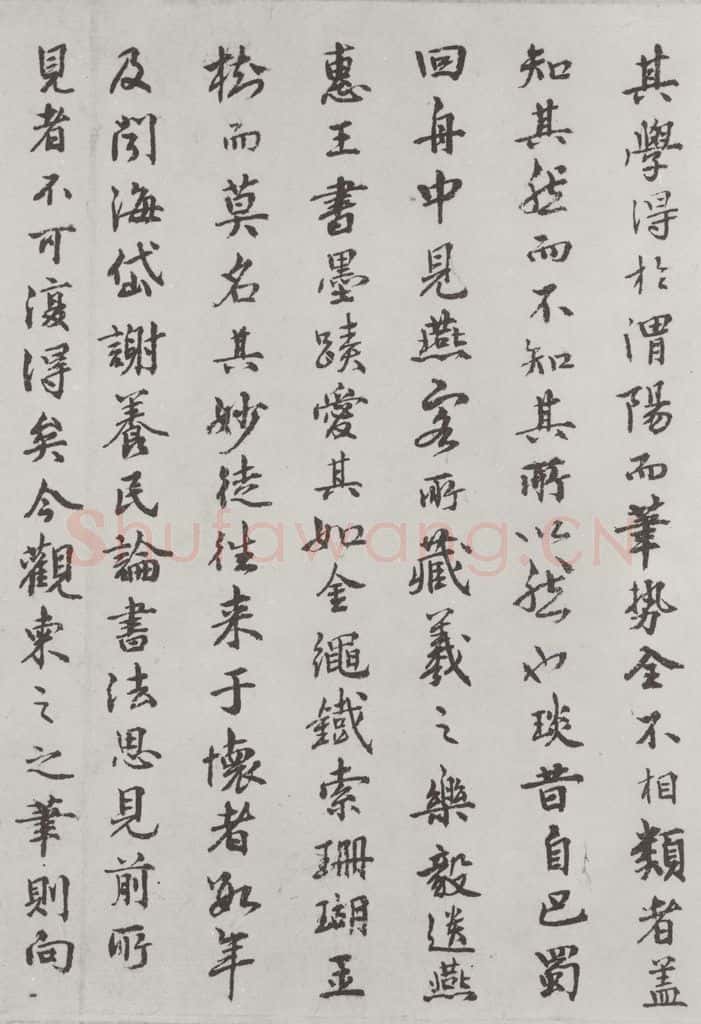 其學得於渭陽而筆勢全不相類者盖
知其然而不知其所以然也琰昔自巴蜀
回舟中見燕客所藏羲之樂毅遺燕
惠王書墨蹟愛其如金繩鐵索珊瑚玉
樹而莫名其妙徒往来于懷者數年
及閱海岱謝養民論書法思見前所
見者不可復得矣今觀東之之筆則向
Shufawang.CN